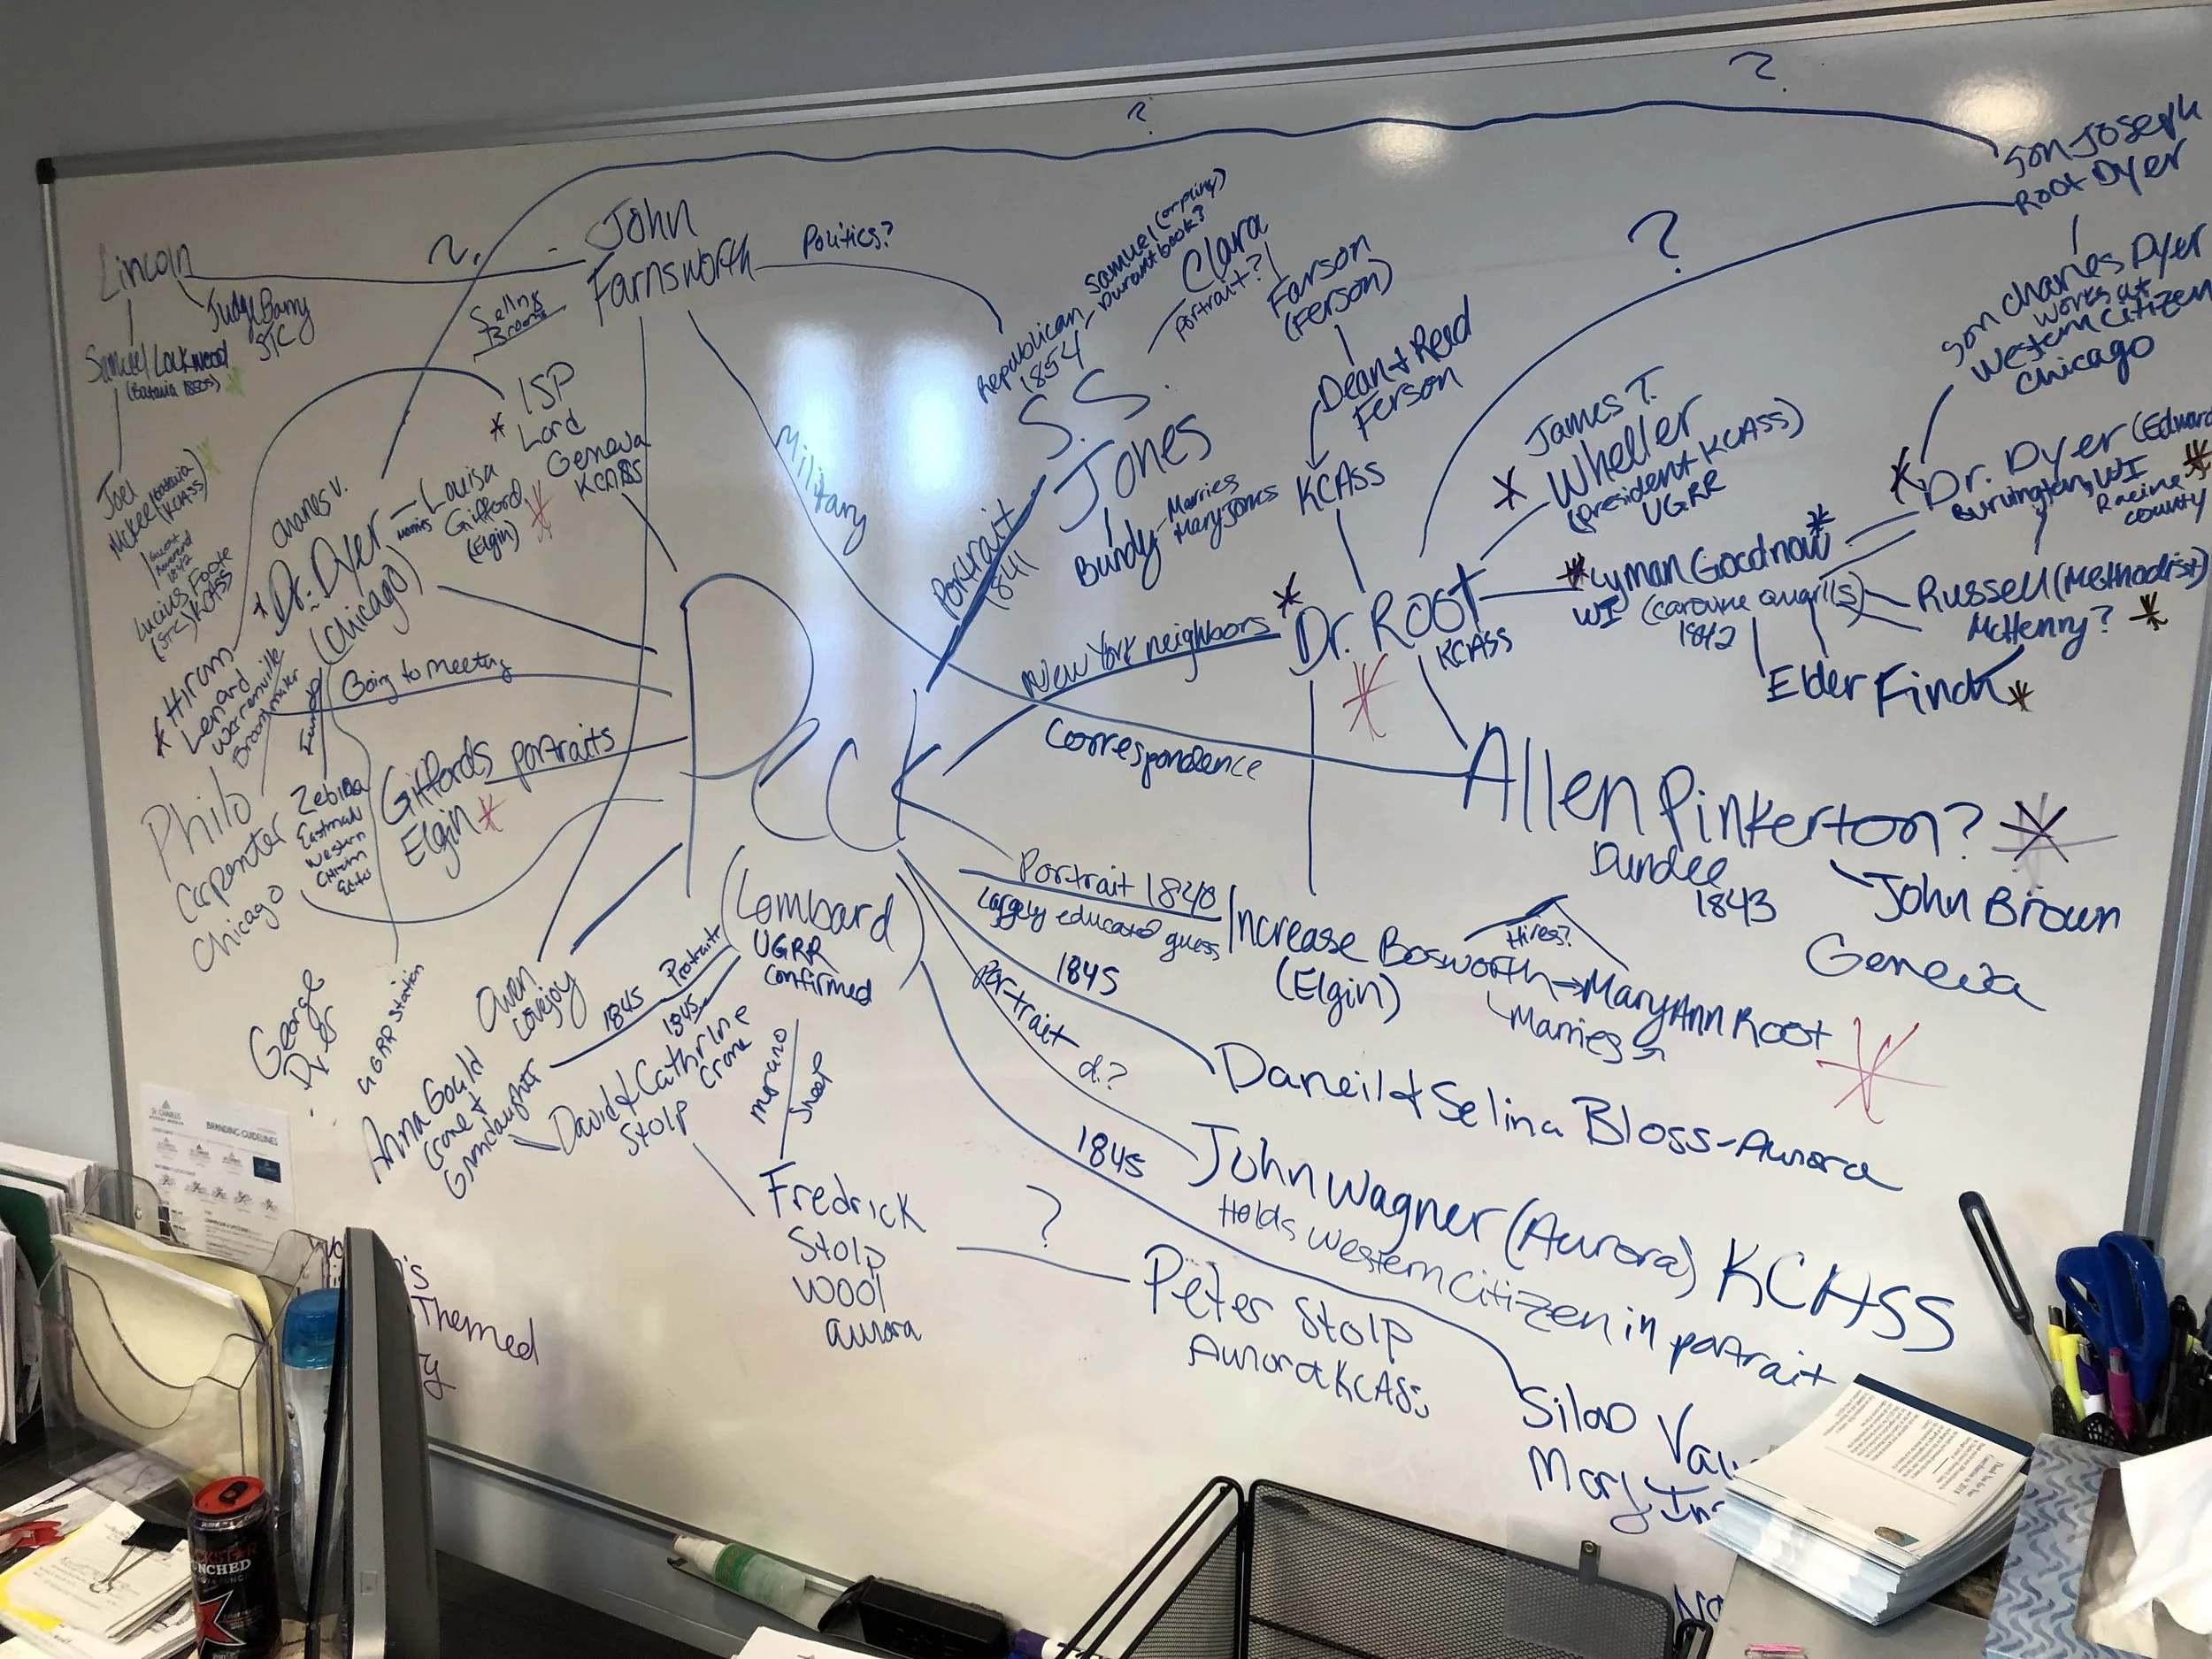 ?
?
Son Joseph
Root Dyer
Son Charles Dyer
works at
Western Citizen
Chicago
?
Lincoln
Judge Barry
STC
Samuel Lockwood
(Batavia 1850s)
Joel
McKee (Batavia)
(KCASS)
Lucius Foote
(STC) KCASS
?
John
Farnsworth
Politics?
Selling
Brooms
ISP
* Lord
Geneva
KCASS
Military
Republican
1854
Samuel (or pliny)
Durant book?
Clara
Portrait?
Farson
(Ferson)
Dean & Read
Ferson
KCASS
S. S.
Jones
Bundy - Marries
Mary Jones
Portrait
1841
James T.
* Wheller
(president KCASS)
UGRR
* Dr. Dyer (Edward
Burlington, WI
Racine *
county
* Lyman Goodnow *
WI (Caroline Quarlls)
1842
Russell (Methodist)
McHenry? *
Elder Finch *
Charles V.
* Dr. Dyer
(Chicago)
marries
Louisa
Gifford
(Elgin) *
* Hiram
Lenard
Warrenville
Broom maker
Going to meeting
Philo
Carpenter
Chicago
Zebina
Eastman
Western
Citizen
Editor
Giffords portraits
Elgin *
PECK
New York neighbors
* Dr. Root
KCASS
*
Correspondence
Allen Pinkerton? *
Dundee
1843
John Brown
Geneva
Portrait 1840
Largely educated guess
Increase Bosworth
(Elgin)
Hires?
Mary Ann Root *
Marries
(Lombard)
UGRR
Confirmed
George
Dyer
UGRR Station
Owen
Lovejoy
1845 Protrait
1845
Anna Gould
Crone &
Grandaughter
David & Cathrine
Stolp Crone
Morano
Sheep
Fredrick
Stolp
Wool
Aurora
?
Peter Stolp
Aurora KCASS
1845
Daneil & Selina Bloss - Aurora
Portrait d.?
John Wagner (Aurora) KCASS
Holds Western Citizen in portrait
1845
Silas
Mary
St. CHARLES
BRANDING GUIDELINES
's
Themed
NCHED